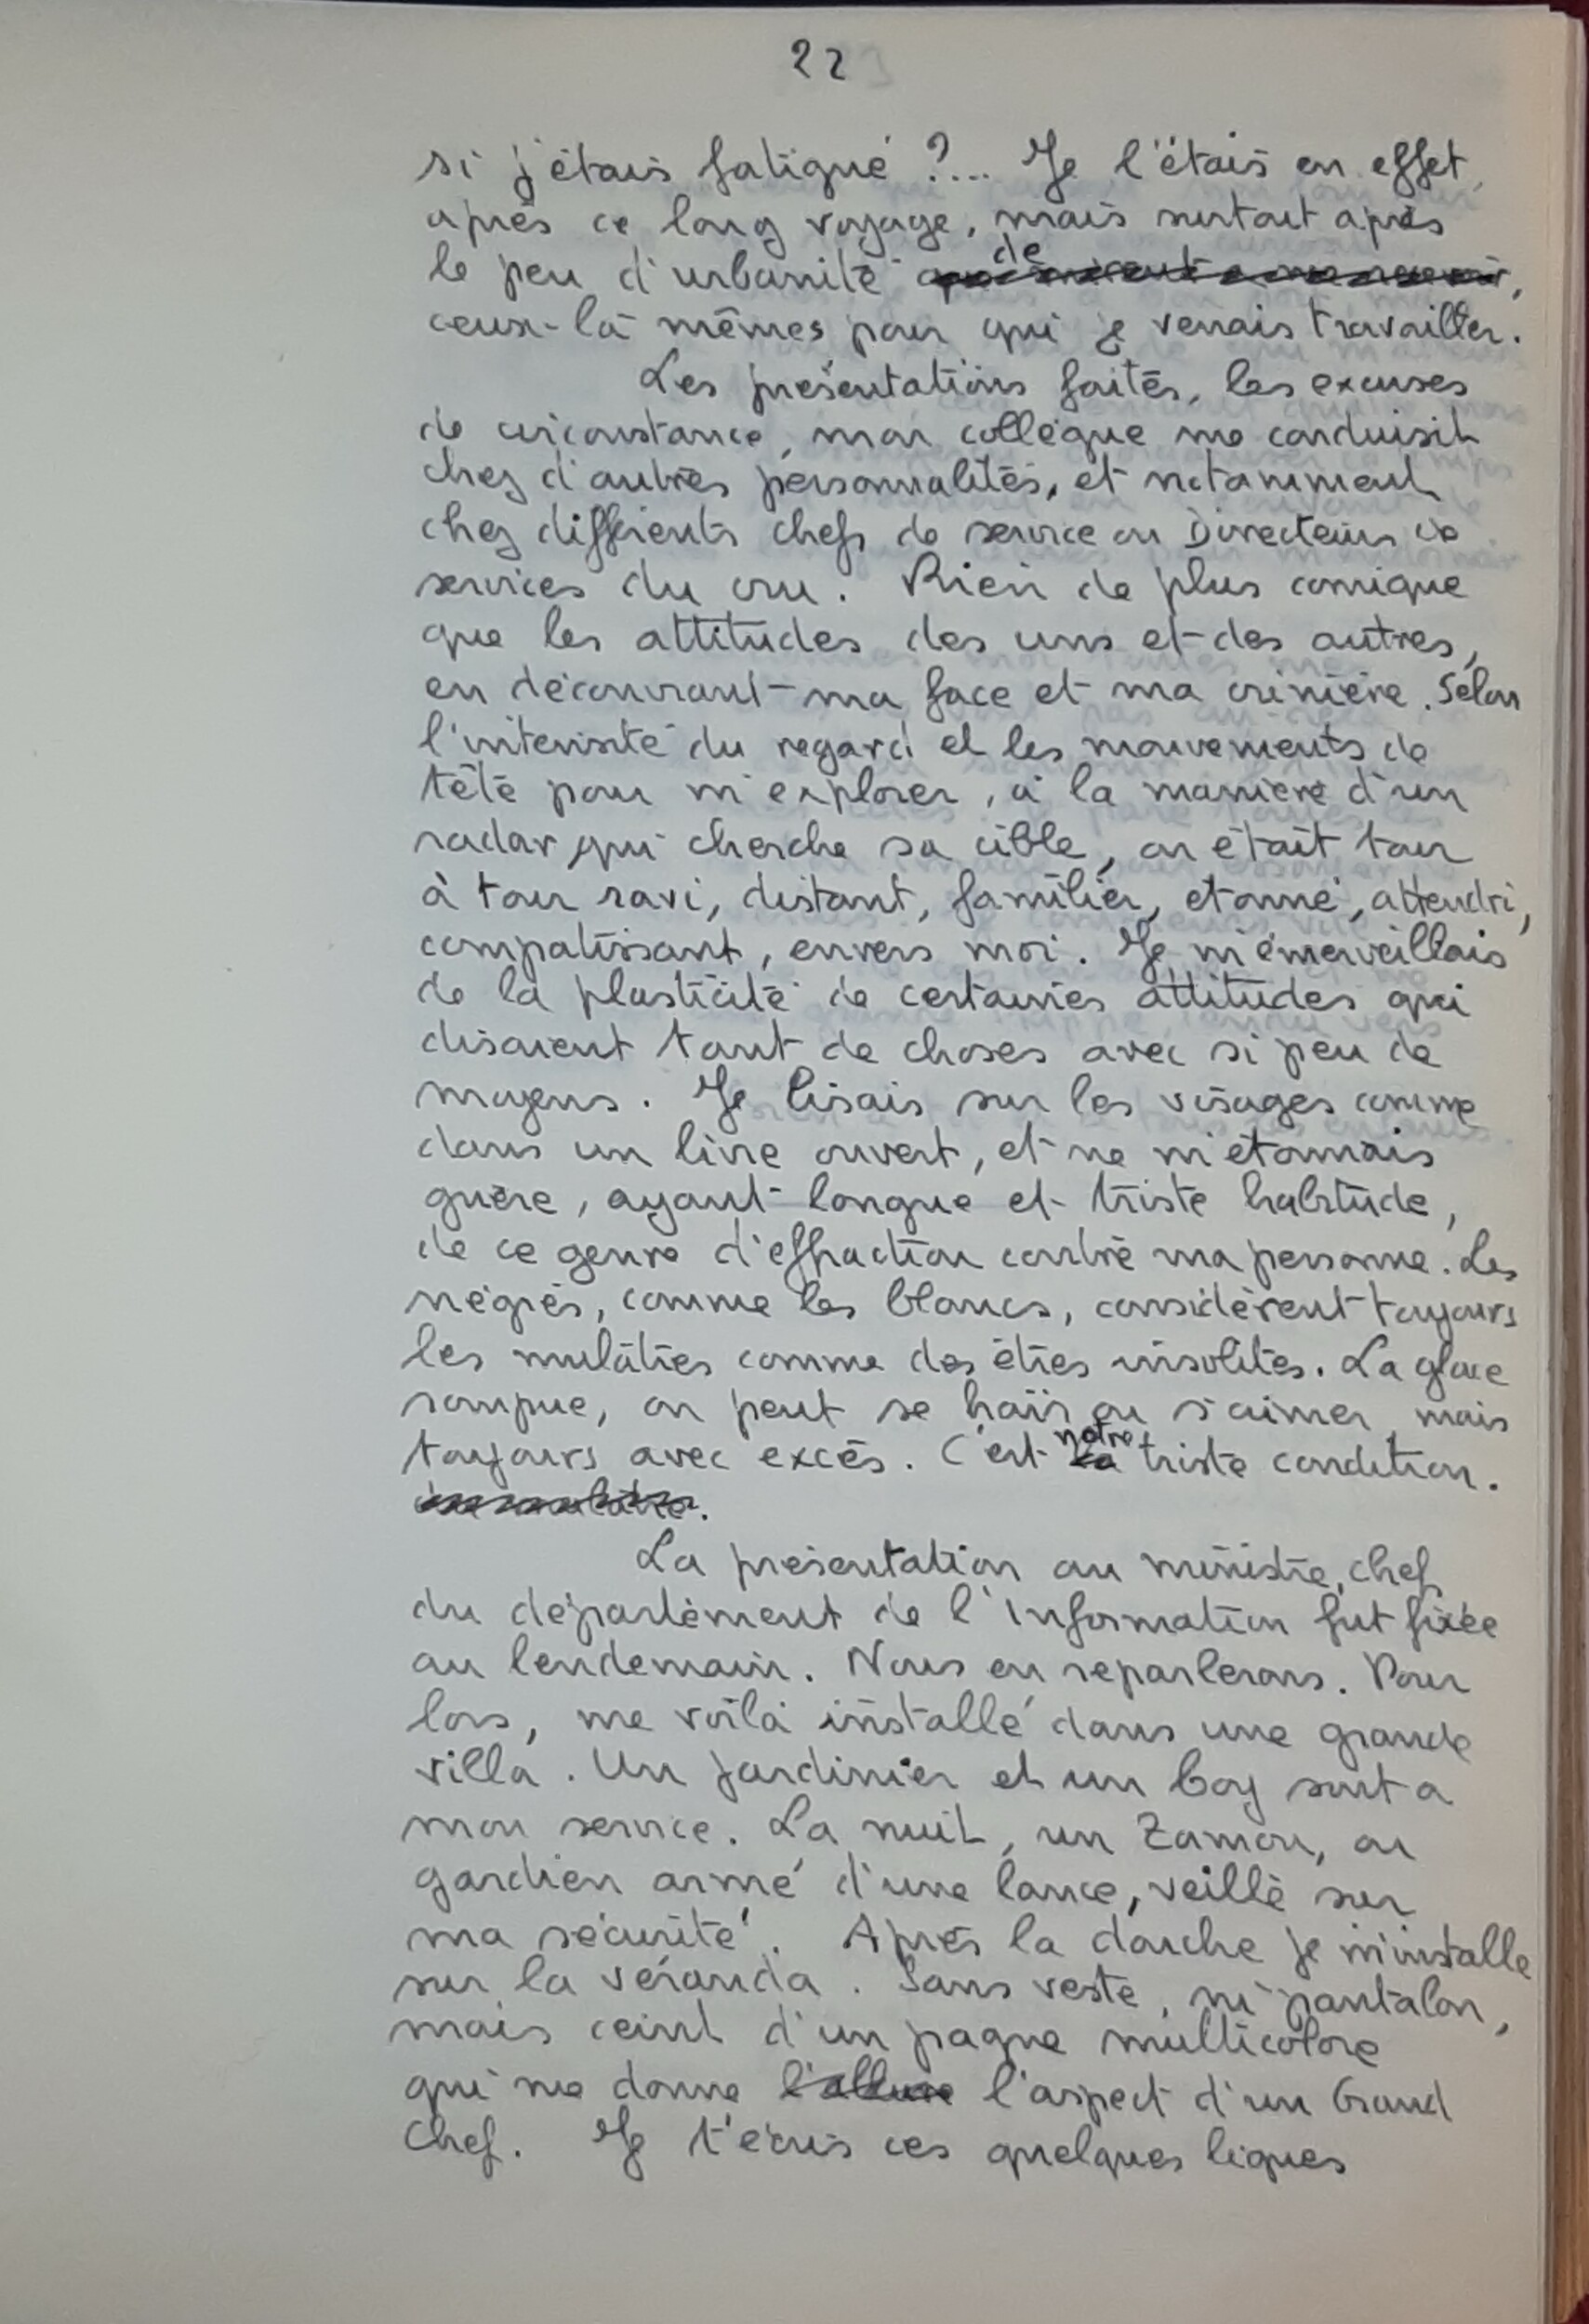 22
si j'étais fatigué ?... Je l'étais en effet,
après ce long voyage, mais surtout après
le peu d'urbanité de
ceux-là mêmes pour qui je venais travailler.
Les présentations faites, les excuses
de circonstance, mon collègue me conduisit
chez d'autres personnalités, et notamment
chez différents chefs de service ou Directeurs de
services du cru. Rien de plus comique
que les attitudes des uns et des autres,
en découvrant ma face et ma crinière. Selon
l'intensité du regard et les mouvements de
tête pour m'explorer, à la manière d'un
radar qui cherche sa cible, on était tour
à tour ravi, distant, familier, étonné, attendri,
compatissant, envers moi. Je m'émerveillais
de la plasticité de certaines attitudes qui
disaient tant de choses avec si peu de
moyens. Je lisais sur les visages comme
dans un livre ouvert, et ne m'étonnais
guère, ayant longue et triste habitude,
de ce genre d'effraction contre ma personne. Les
nègres, comme les blancs, considèrent toujours
les mulâtres comme des êtres insolites. La glace
rompue, on peut se haïr ou s'aimer, mais
toujours avec excès. C'est la notre triste condition.
de mulâtre.
La présentation au ministre, chef
du département de l'Information fut fixée
au lendemain. Nous en reparlerons. Pour
lors, me voilà installé dans une grande
villa. Un jardinier et un boy sont à
mon service. La nuit, un Zamou, ou
gardien armé d'une lance, veille sur
ma sécurité. Après la douche je m'installe
sur la véranda. Sans veste, ni pantalon,
mais ceint d'un pagne multicolore
qui me donne l'allure l'aspect d'un Grand
Chef. Je t'écris ces quelques lignes